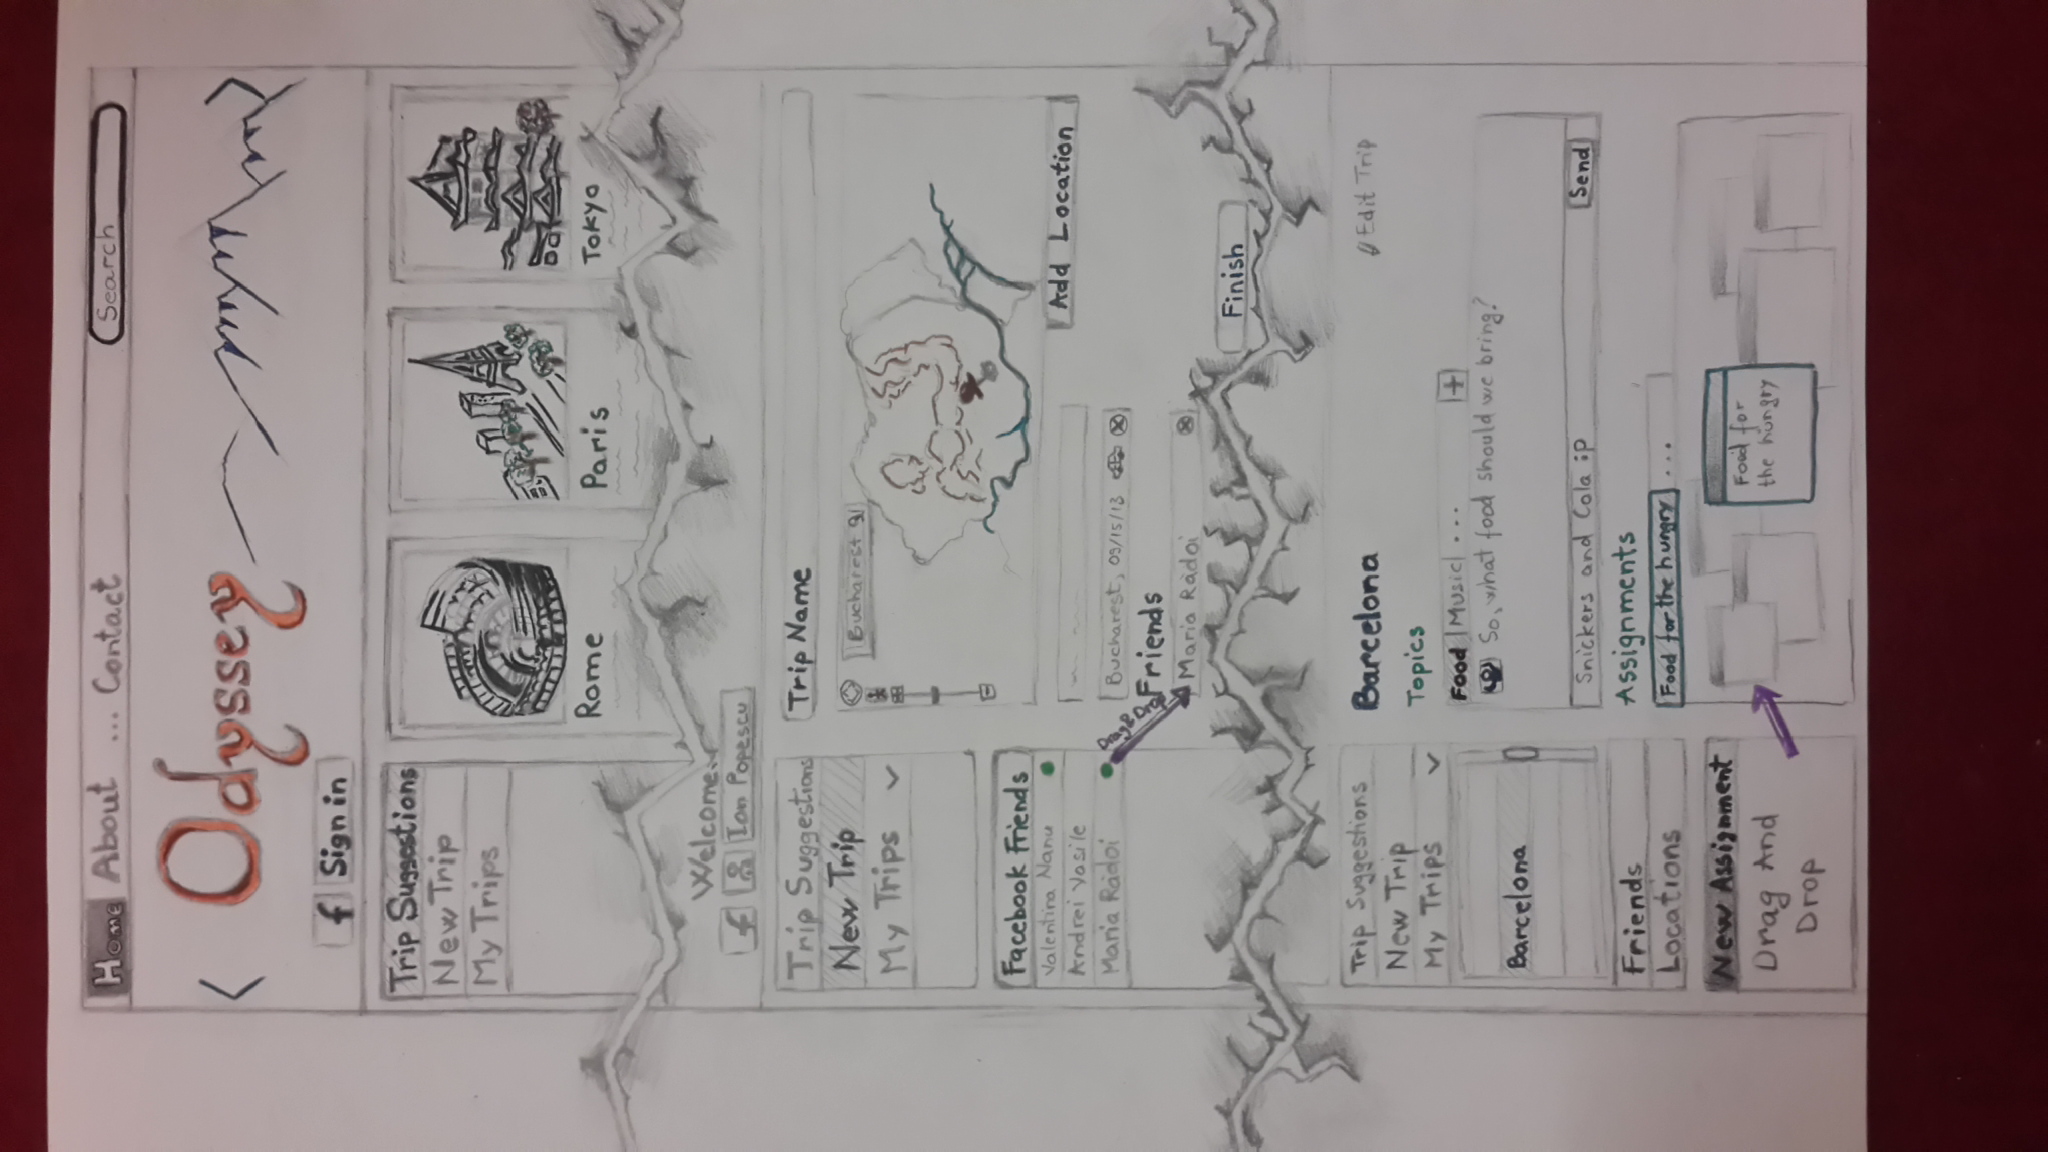 Home About ... Contact Search
Odyssey
f Sign in
Trip Suggestions
New Trip
My Trips
Rome
Paris
Tokyo
Welcome
f Ion Popescu
Trip Suggestions
New Trip
My Trips
Facebook Friends
Valentina Nanu
Andrei Vasile
Maria Rădoi
Drag & Drop
Trip Name
Bucharest
Add Location
Bucharest, 09/15/13
Friends
Maria Rădoi
Finish
Trip Suggestions
New Trip
My Trips
Barcelona
Friends
Locations
New Assignment
Drag And
Drop
Barcelona
Edit Trip
Topics
Food | Music | ... +
So, what food should we bring?
Snickers and Cola :P
Send
Assignments
Food for the hungry ...
Food for
the hungry